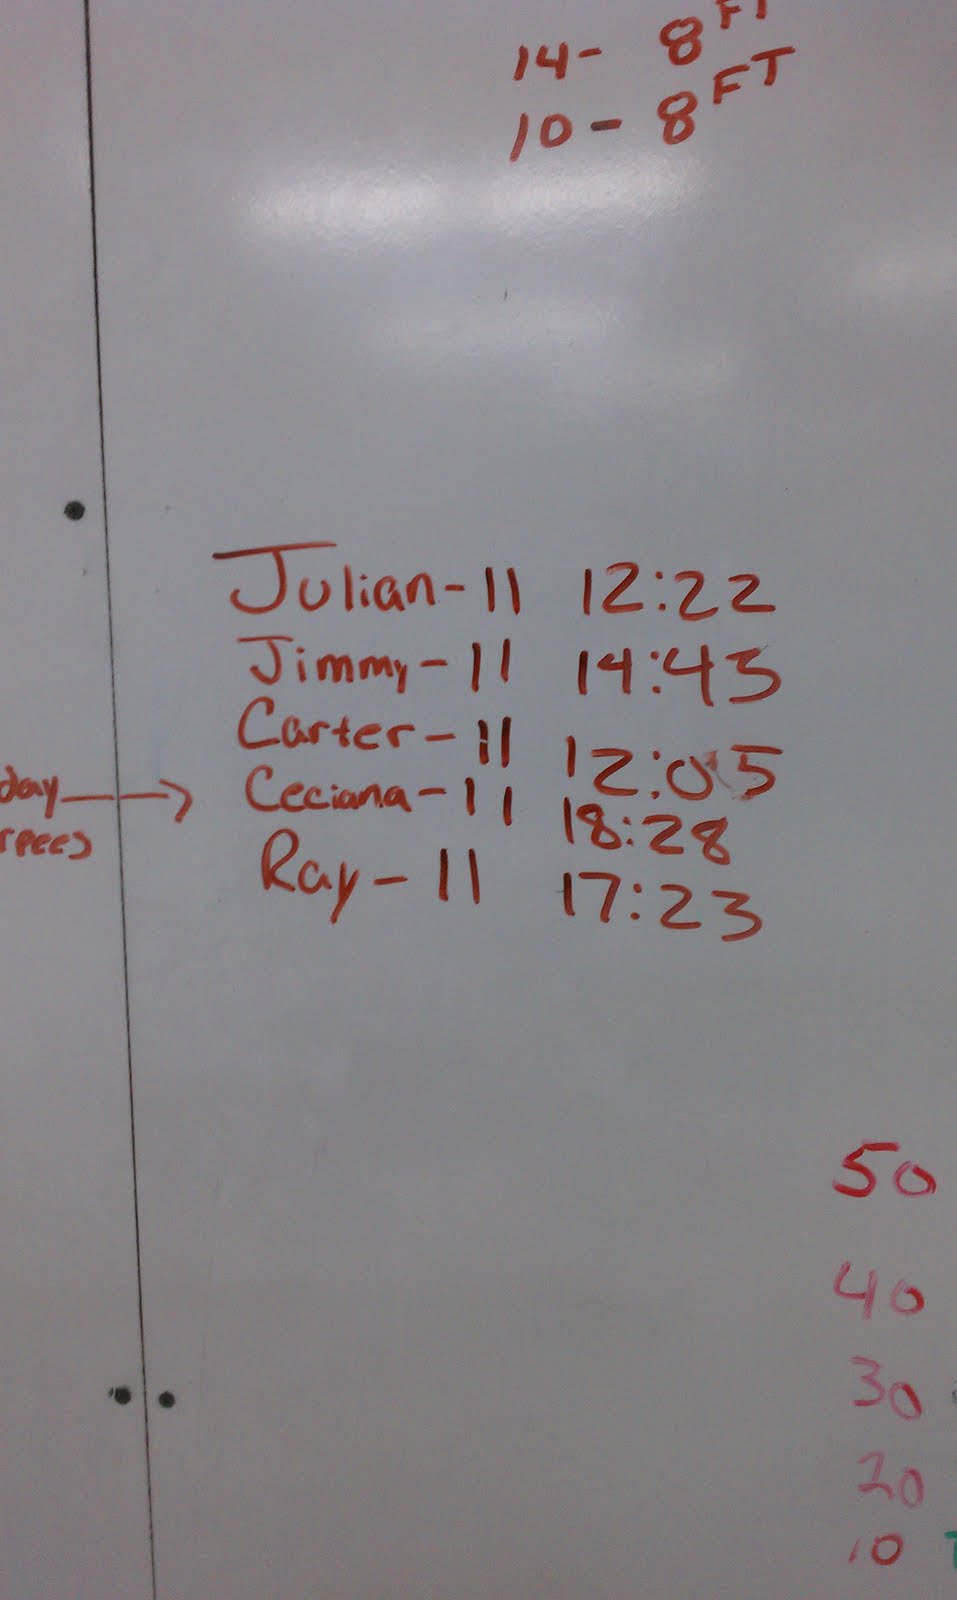 14- 8 FT
10 - 8 FT
Julian - 11 12:22
Jimmy - 11 14:45
Carter - 11 12:05
day → Ceciana - 11 18:28
Ray - 11 17:23
50
40
30
20
10